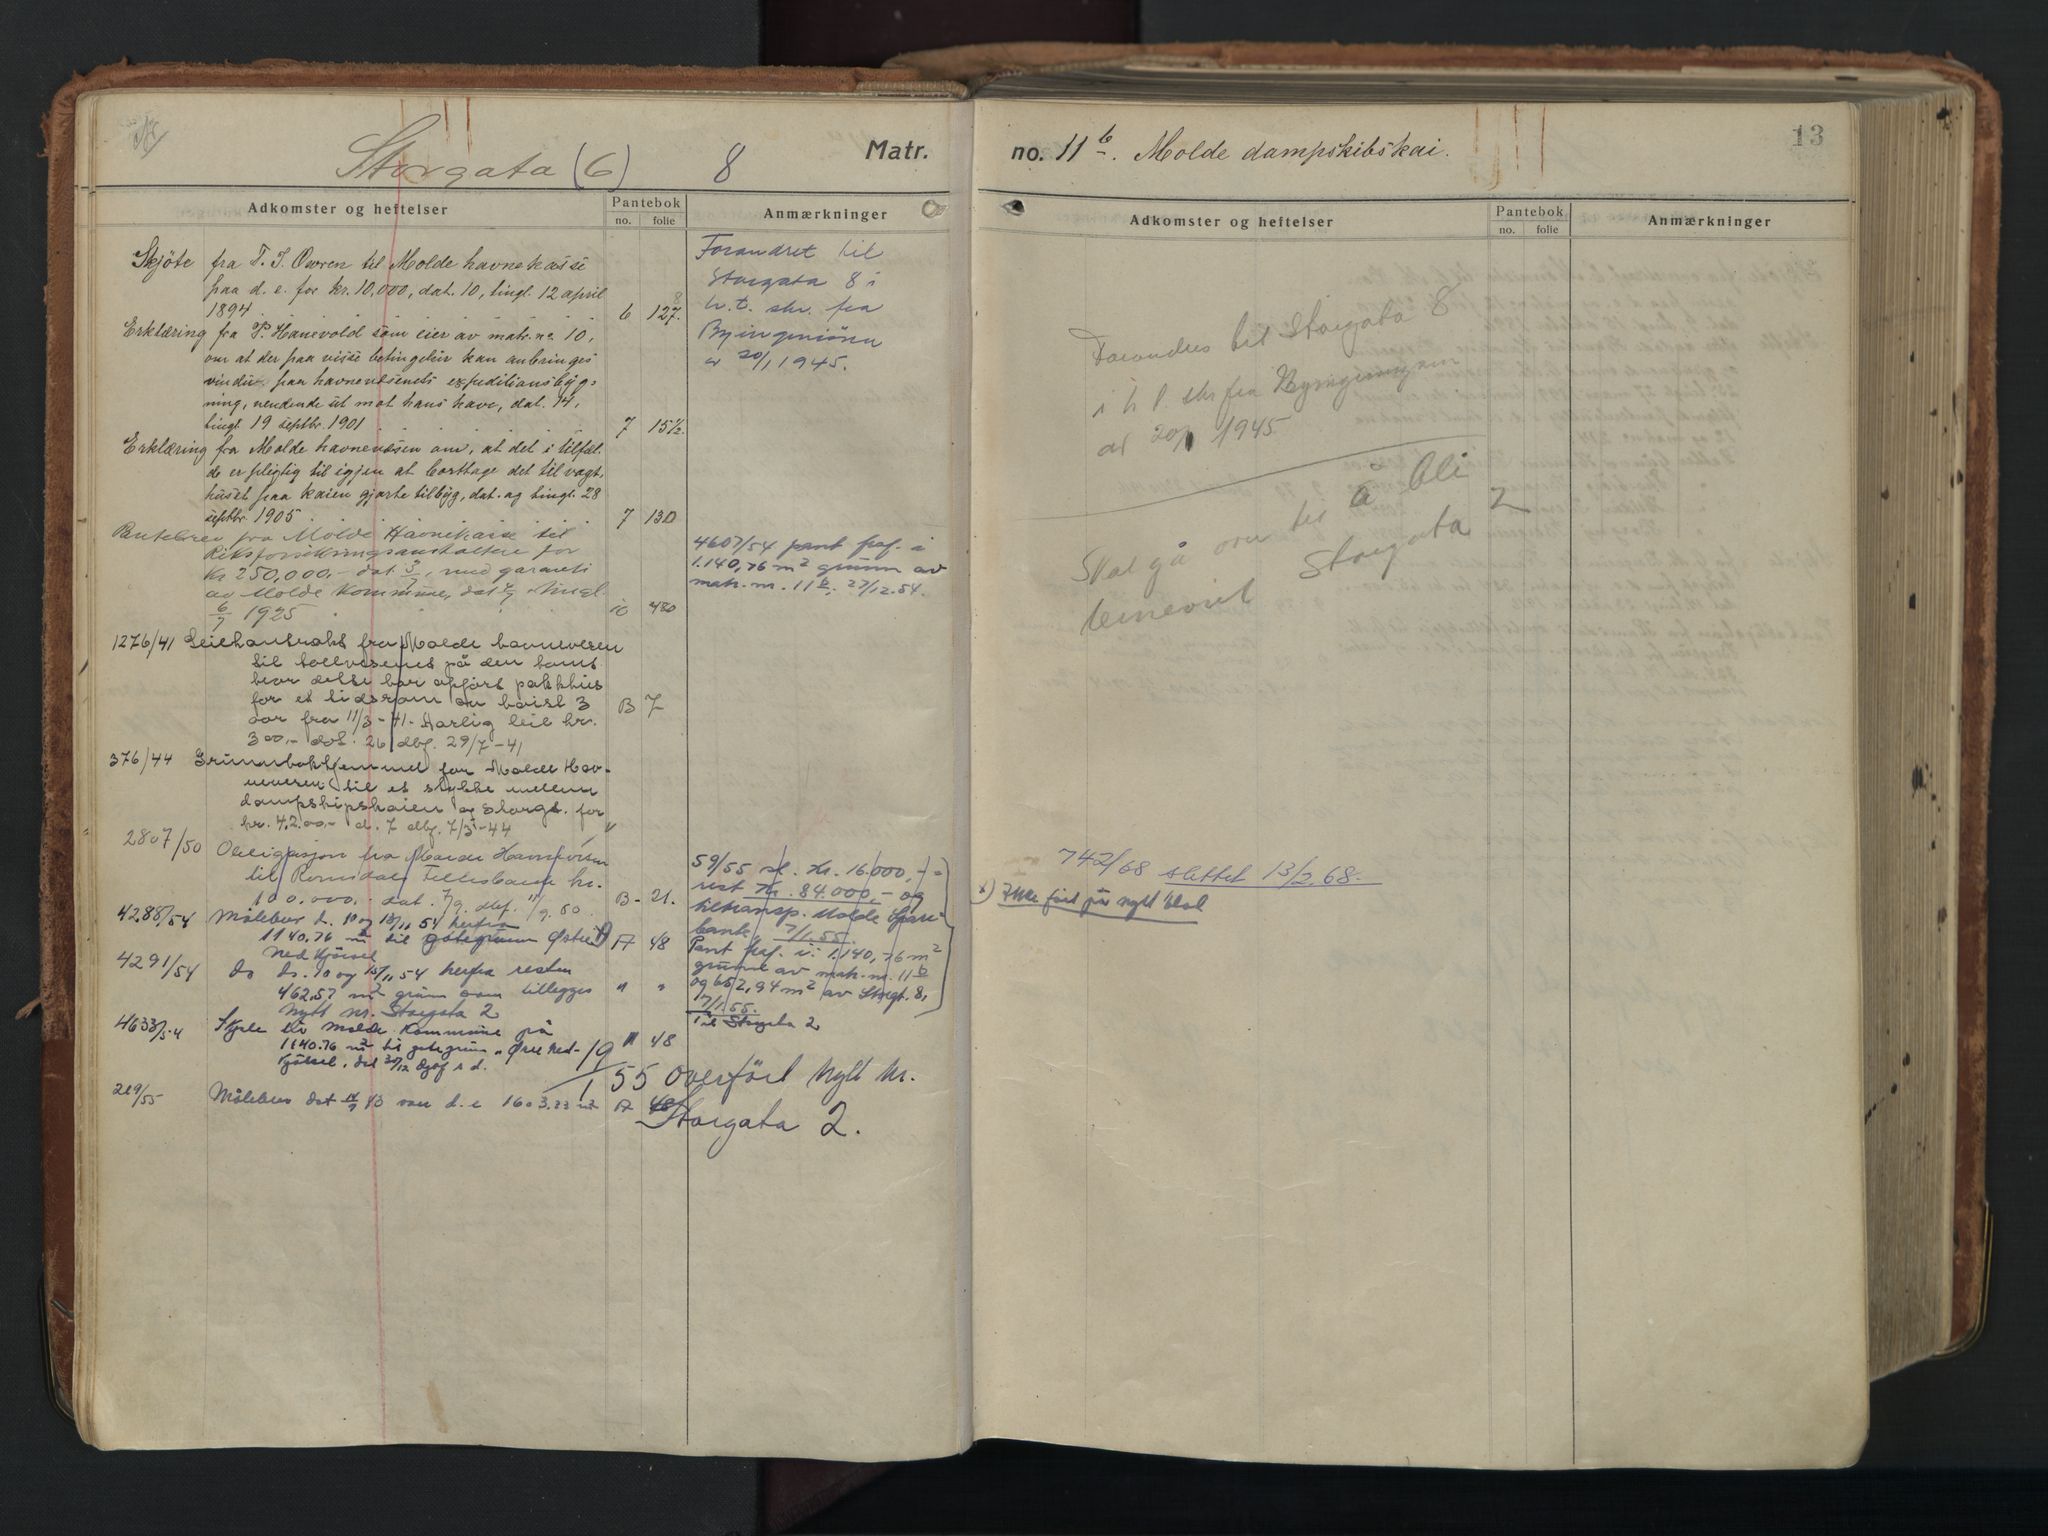 Storgata (6) 8 Matr.
Adkomster og heftelser
Pantebok
no. folie
Anmærkninger
Skjöte fra T. J. Owren til Molde havnekasse
paa d. e. for kr. 10,000, dat. 10, tingl. 12 april
1894. 6 127.
Erklæring fra P. Hanevold som eier av matr. no. 10,
om at der paa visse betingelser kan anbringes
vinduer paa havnevæsenets expeditionsbyg-
ning, vendende ut mot hans have, dat. 14,
tingl. 19 septbr. 1901 7 15½.
Erklæring fra Molde havnevæsen om, at det i tilfæl-
de er pligtig til igjen at borttage det til vagt-
huset paa kaien gjorte tilbyg, dat. og tingl. 28
septbr. 1905 7 130
Pantebrev fra Molde Havnekasse til
Riksforsikringsanstalten for
Kr 250,000,- dat. 3/7, med garanti
av Molde Kommune, dat. tingl.
6/7 1925 10 480
1276/41 Leiekontrakt fra Molde havnevesen
til tollvesenet på den tomt
hvor dette har opført pakkhus
for et tidsrom av høist 3
aar fra 11/3-41. Aarlig leie kr.
300,- dat. 26 dbf. 29/7-41 B 7
376/44 Grunnbokhjemmel for Molde Hav-
nevesen til et stykke mellem
dampskipskaien og Storgt. for
kr. 4200,- d. 7 dbf. 7/3-44 "
2807/50 Obligasjon fra Molde Havnevesen
til Romsdals Fellesbank kr.
100.000,- dat. 7/9. dbf. 11/9.50. B- 21.
4288/54 Målebrev d. 10 og 13/11 54 herfra
1140.76 m² til gategrunn Østre A 48
Nedkjörsel
4291/54 do d. 10 og 15/11 54 herfra resten
462,57 m² grunn som tillegges " "
Nytt nr. Storgata 2
4633/54 Skjøte til Molde Kommune på
1140.76 m² til gategrunn "Østre Ned- " 48
kjörsel, dat 30/12 Dgbf s.d.
19/1 55 overført Nytt Nr.
219/55 Målebrev dat 43 over d. e 1603.33 m² A 48
Storgata 2.
Forandret til
Storgata 8 i
h.t. skr. fra
Byingeniören
av 20/1 1945.
4607/54 pant fraf. i
1.140,76 m² grunn av
matr. nr. 11b, 27/12.54.
59/55 sl. Kr. 16.000,-
rest Kr. 84.000,- og
tiltransp. Molde Spare-
bank 7/1.55
Pant fraf. i: 1.140,76 m²
grunn av matr. nr. 11b
og 652,94 m² av Storgt. 8,
17/1.55.
Til Storgata 2
no. 11b. Molde dampskibskai. 13
Adkomster og heftelser
Pantebok
no. folie
Anmærkninger
Forandres til Storgata 8
i h. t. skr fra Byingeniøren
av 20/1 1945.
Skal gå over til å bli
benevnt Storgata 2
742/68 slettet 13/2.68.
x) Ikke ført på nytt blad